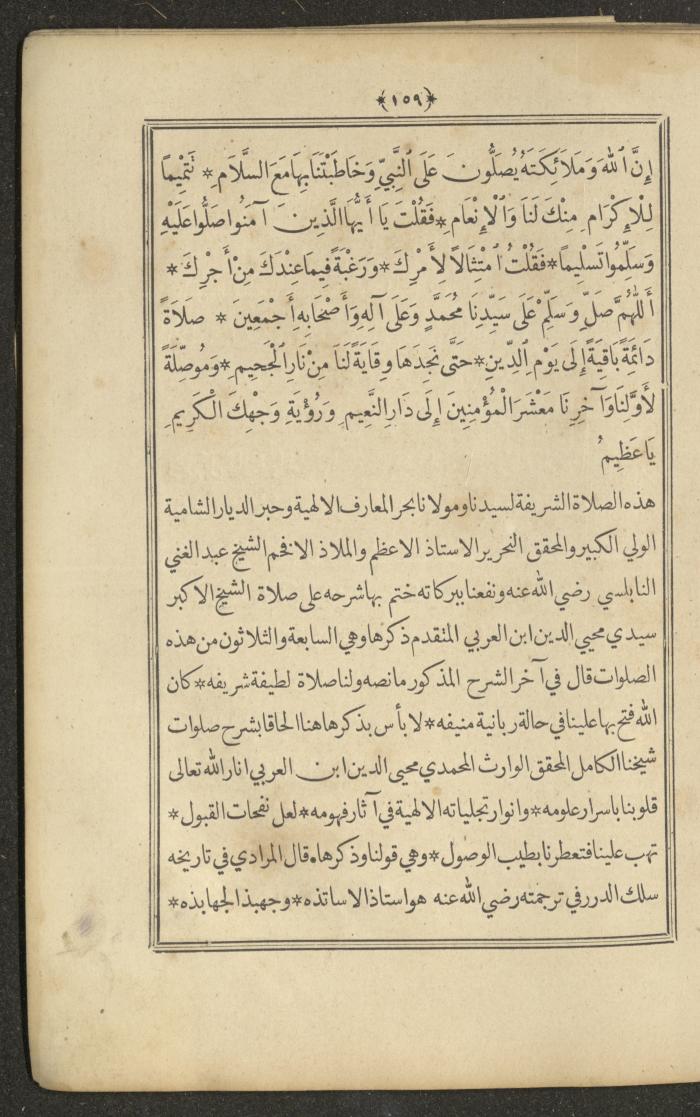 ﴿١٥٩﴾
إِنَّ ٱللهَ وَمَلَائِكَتَهُ يُصَلُّونَ عَلَى ٱلنَّبِيِّ وَخَاطَبْتَنَا بِهَا مَعَ السَّلَامِ * تَتْمِيماً
لِلْإِكْرَامِ مِنْكَ لَنَا وَٱلْإِنْعَامِ * فَقُلْتَ يَا أَيُّهَا الَّذِينَ آمَنُوا صَلُّوا عَلَيْهِ
وَسَلِّمُوا تَسْلِيماً * فَقُلْتُ ٱمْتِثَالاً لِأَمْرِكَ * وَرَغْبَةً فِيمَا عِنْدَكَ مِنْ أَجْرِكَ *
أَللّٰهُمَّ صَلِّ وَسَلِّمْ عَلَى سَيِّدِنَا مُحَمَّدٍ وَعَلَى آلِهِ وَأَصْحَابِهِ أَجْمَعِينَ * صَلَاةً
دَائِمَةً بَاقِيَةً إِلَى يَوْمِ ٱلدِّينِ * حَتَّى نَجِدَهَا وِقَايَةً لَنَا مِنْ نَارِ الْجَحِيمِ * وَمُوصِلَةً
لِأَوَّلِنَا وَآخِرِنَا مَعْشَرَ الْمُؤْمِنِينَ إِلَى دَارِ النَّعِيمِ وَرُؤْيَةِ وَجْهِكَ الْكَرِيمِ
يَا عَظِيمُ
هذه الصلاة الشريفة لسيدنا ومولانا بحر المعارف الالهية وحبر الديار الشامية
الولي الكبير والمحقق النحرير الاستاذ الاعظم والملاذ الافخم الشيخ عبد الغني
النابلسي رضي الله عنه ونفعنا ببركاته ختم بها شرحه على صلاة الشيخ الاكبر
سيدي محيي الدين ابن العربي المتقدم ذكرها وهي السابعة والثلاثون من هذه
الصلوات قال في آخر الشرح المذكور ما نصه ولنا صلاة لطيفة شريفه * كان
الله فتح بها علينا في حالة ربانية منيفه * لا بأس بذكرها هنا الحاقا بشرح صلوات
شيخنا الكامل المحقق الوارث المحمدي محيي الدين ابن العربي انار الله تعالى
قلوبنا باسرار علومه * وانوار تجلياته الالهية في آثار فهومه * لعل نفحات القبول *
تهب علينا فتعطرنا بطيب الوصول * وهي قولنا وذكرها * قال المرادي في تاريخه
سلك الدرر في ترجمته رضي الله عنه هو استاذ الاساتذه * وجهبذ الجهابذه *